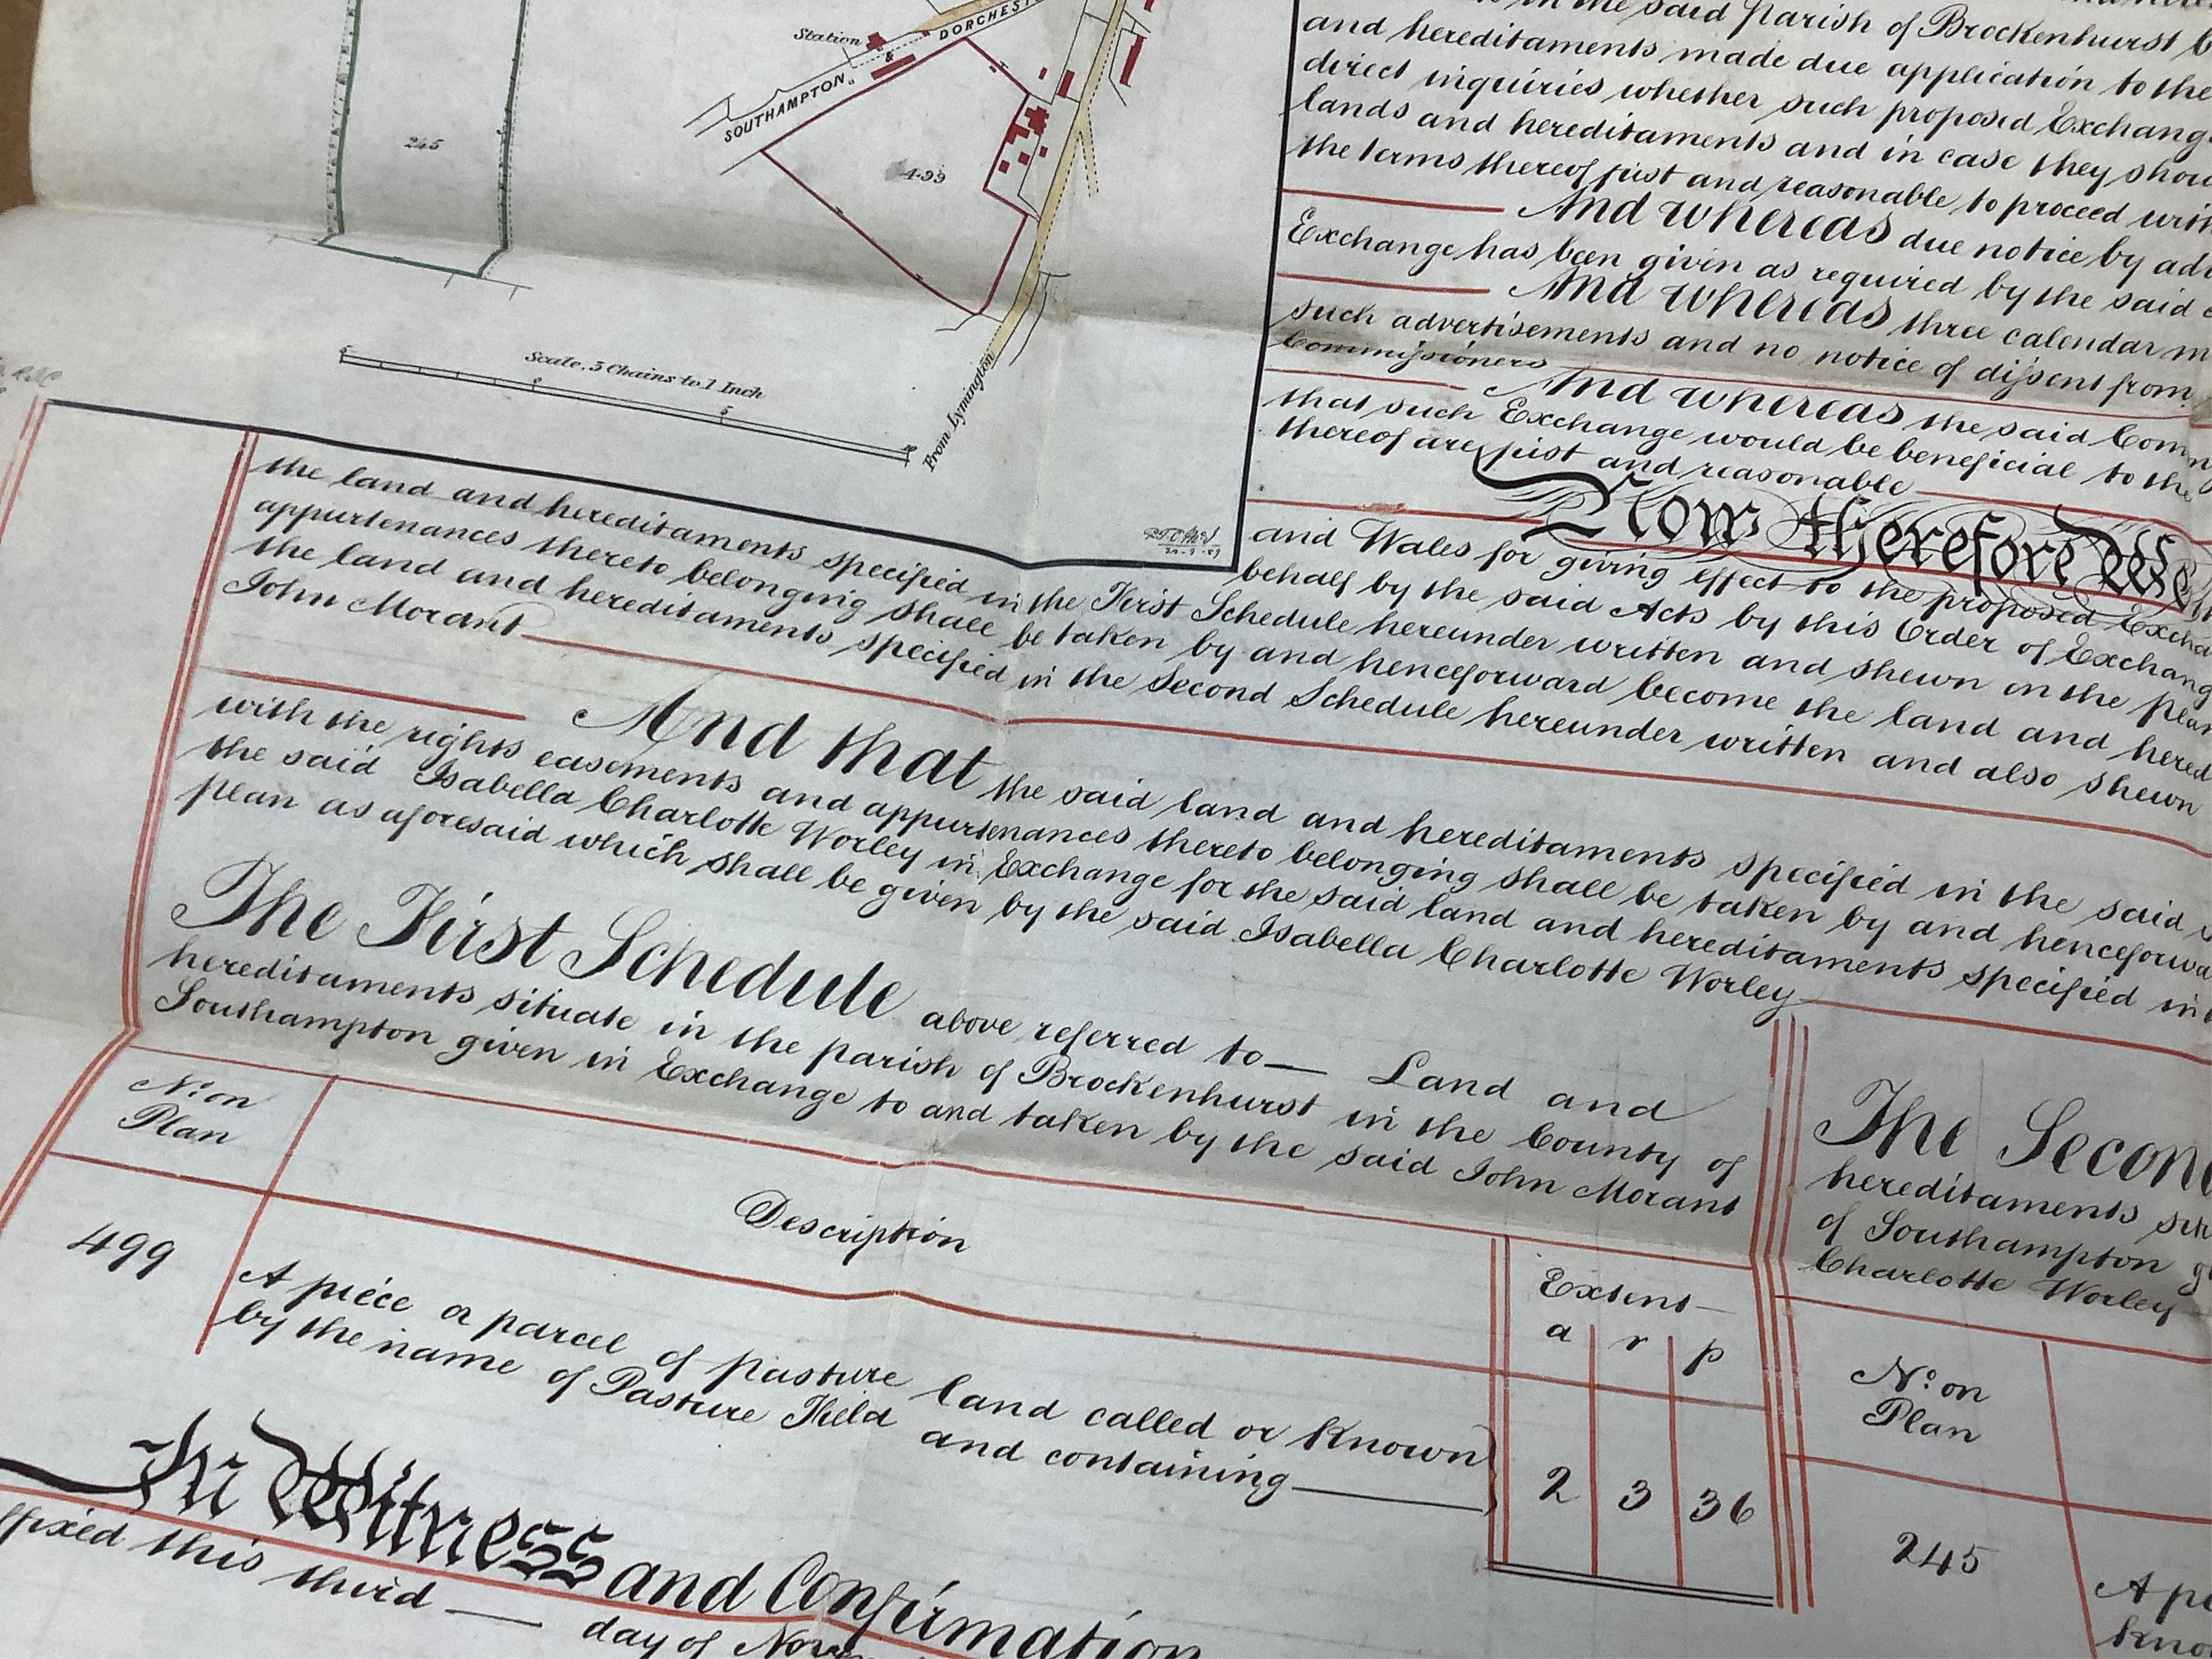 Station
&
DORCHEST
SOUTHAMPTON
245
499
Scale, 3 Chains to 1 Inch
From Lymington
in the said Parish of Brockenhurst
and hereditaments made due application to the
direct inquiries whether such proposed Exchang
lands and hereditaments and in case they shou
the terms thereof just and reasonable to proceed with
And whereas due notice by adv
Exchange has been given as required by the said
And whereas three calendar m
such advertisements and no notice of dissent from
Commissioners
And whereas the said Com
that such Exchange would be beneficial to the
thereof are just and reasonable
Now therefore We
and Wales for giving effect to the proposed Excha
behalf by the said Acts by this Order of Exchang
the land and hereditaments specified in the First Schedule hereunder written and shewn on the plan
appurtenances thereto belonging shall be taken by and henceforward become the land and hered
the land and hereditaments specified in the Second Schedule hereunder written and also shewn
John Morant
And that the said land and hereditaments specified in the said S
with the rights easements and appurtenances thereto belonging shall be taken by and henceforwa
the said Isabella Charlotte Worley in Exchange for the said land and hereditaments specified in
plan as aforesaid which shall be given by the said Isabella Charlotte Worley
The First Schedule above referred to — Land and
hereditaments situate in the parish of Brockenhurst in the County of
Southampton given in Exchange to and taken by the said John Morant
No. on
Plan
Description
Extent
a r p
499
A piece or parcel of pasture land called or known
by the name of Pasture Field and containing
2 3 36
The Secon
hereditaments sit
of Southampton g
Charlotte Worley
No. on
Plan
245
A pi
kno
In Witness and Confirmation
ffixed this third — day of Nov